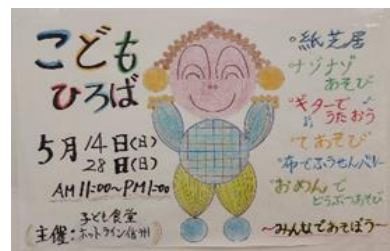 こども
ひろば
5月14日(日)
28日(日)
AM 11:00~PM 1:00
主催:子ども食堂
ホットライン信州
°紙芝居
ナゾナゾ
あそび
°ギターで
うたおう
°てあそび
°布でふうせんバレー
°おめんで
どうぶつあそび
~みんなであそぼう~